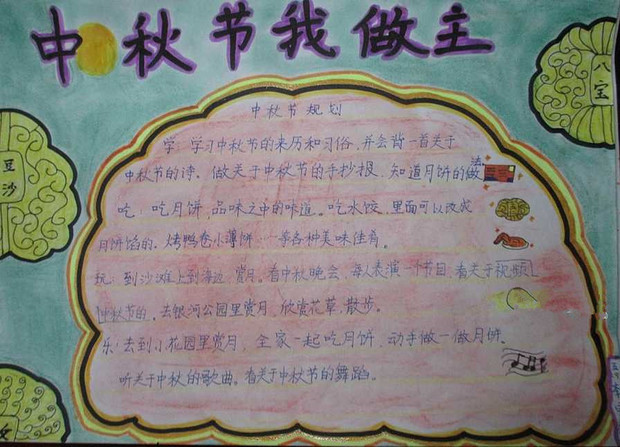 中秋节我做主
八宝
豆沙
中秋节规划
学：学习中秋节的来历和习俗，并会背一首关于
中秋节的诗。做关于中秋节的手抄报，知道月饼的做法
吃：吃月饼，品味之中的味道。吃水饺，里面可以改成
月饼馅的，烤鸭卷小薄饼，一等各种美味佳肴。
玩：到沙滩上到海边，赏月。看中秋晚会，每人表演一个节目，看关于
中秋节的，去银河公园里赏月，欣赏花草，散步。
乐：去到小花园里赏月，全家一起吃月饼，动手做一做月饼。
听关于中秋的歌曲。看关于中秋节的舞蹈。